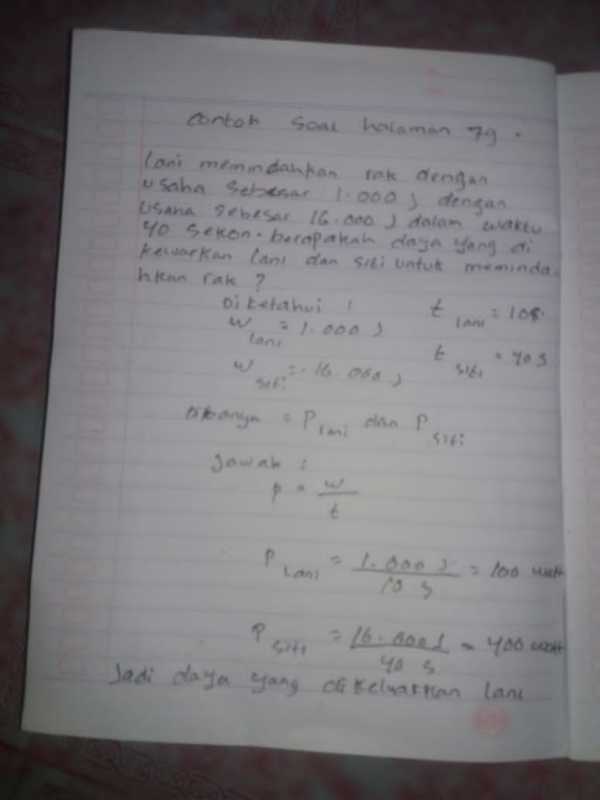 contoh soal halaman 79.
Lani memindahkan rak dengan
usaha sebesar 1.000 J dengan
usaha sebesar 16.000 J dalam waktu
40 sekon. berapakah daya yang di
keluarkan lani dan siti untuk meminda
hkan rak ?
Diketahui : t lani = 10s.
w lani = 1.000 J
t siti = 40 s
w siti = 16.000 J
Ditanya = P lani dan P siti
Jawab :
P = w / t
P Lani = 1.000 J / 10 s = 100 watt
P siti = 16.000 J / 40 s = 400 watt
Jadi daya yang dikeluarkan lani